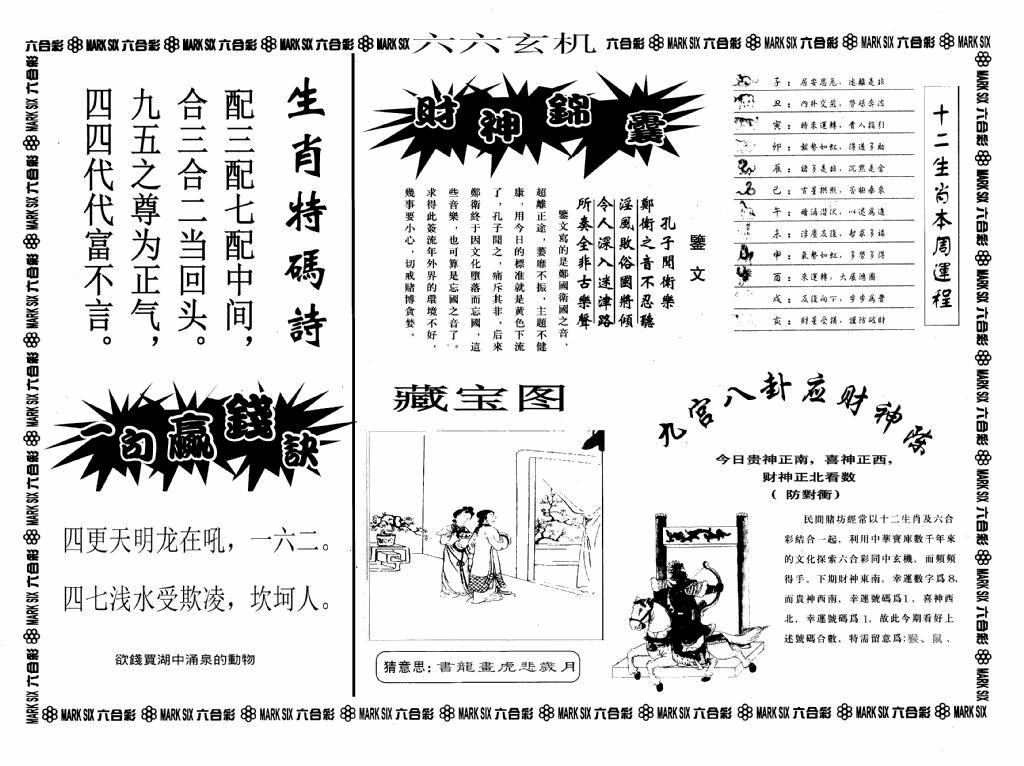 六合彩 MARK SIX 六合彩 MARK SIX 六合彩 MARK SIX 六合彩 MARK SIX 六六玄机 六合彩 MARK SIX 六合彩 MARK SIX 六合彩 MARK SIX 六合彩 MARK SIX
生肖特碼詩
配三配七配中间，
合三合二当回头。
九五之尊为正气，
四四代代富不言。
一句赢錢訣
四更天明龙在吼，一六二。
四七浅水受欺凌，坎坷人。
欲錢買湖中涌泉的動物
財神錦囊
鑒文
孔子聞衛樂
鄭衛之音不忍聽
淫風敗俗國將傾
令人深入迷津路
所奏全非古樂聲
鑒文寫的是鄭國衛國之音，
超離正途，萎靡不振，主題不健
康，用今日的標准就是黄色下流
了，孔子聞之，痛斥其非，后來
鄭衛終于因文化墮落而忘國，這
些音樂，也可算是忘國之音了。
求得此簽流年外界的環境不好，
幾事要小心，切戒賭博貪婪。
十二生肖本周運程
子：居安思危，遠離是非
丑：内外交煎，勞碌奔波
寅：時來運轉，貴人指引
卯：氣勢如虹，得道多助
辰：諸多是非，沉默是金
巳：吉星拱照，否極泰來
午：暗涌潜伏，以退爲進
未：淳廣反復，智求多福
申：氣勢如虹，多勞多得
酉：來運轉，大展鴻圖
戌：反復向下，步步爲營
亥：財星受損，謹防破財
藏宝图
猜意思：書龍畫虎悲歲月
九宮八卦应财神
今日贵神正南，喜神正西，
财神正北看数
（防對衝）
民間賭坊經常以十二生肖及六合
彩結合一起，利用中華寶庫數千年來
的文化探索六合彩同中玄機，而頻頻
得手。下期财神東南，幸運數字爲8，
而貴神西南，幸運號碼爲1，喜神西
北，幸運號碼爲1，故此今期看好上
述號碼合數，特需留意爲：猴、鼠、
MARK SIX 六合彩 MARK SIX 六合彩 MARK SIX 六合彩 MARK SIX 六合彩 MARK SIX 六合彩 MARK SIX 六合彩 MARK SIX 六合彩 MARK SIX 六合彩 MARK SIX 六合彩 MARK SIX